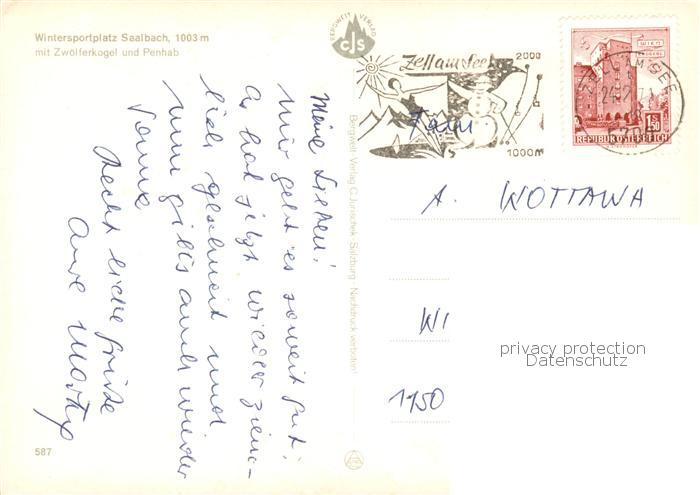 Wintersportplatz Saalbach, 1003 m
mit Zwölferkogel und Penhab
BERGWELT VERLAG
CJS
Zell am See
2000
1000m
ZELL AM SEE
WIEN
1 S 50
REPUBLIK ÖSTERREICH
Fam.
A. WOTTAWA
WI
1150
privacy protection
Datenschutz
Bergwelt-Verlag C. Jurischek, Salzburg - Nachdruck verboten!
Meine Lieben!
Mir geht es soweit gut;
es hat jetzt wieder ziem-
lich geschneit und
nun gibts auch wieder
Sonne
Recht liebe Grüße
Eure
587